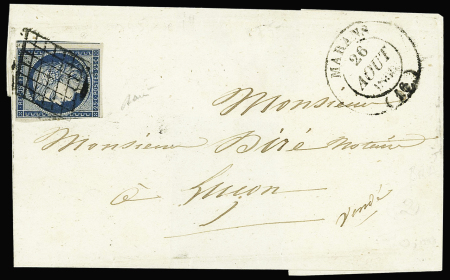 MARANS
26
AOUT
(16)
Monsieur
Monsieur Biré Notaire
à Luçon
Vendé